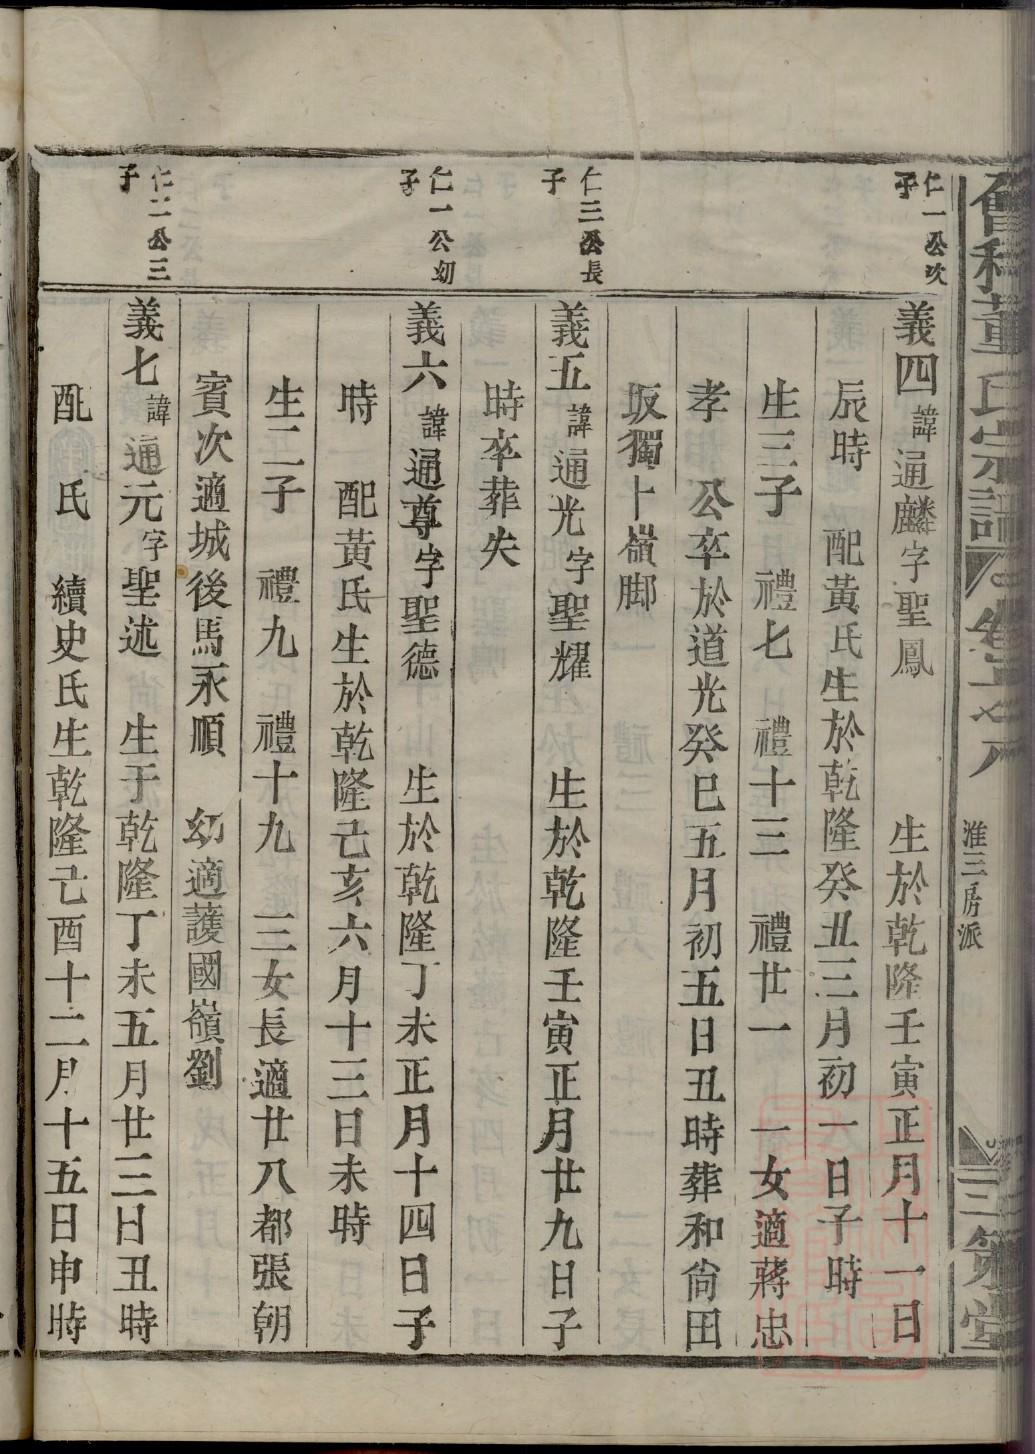 會稽董氏宗譜 卷五之八 淮三房派 三策堂
仁一公次子
義四諱通麟字聖鳳 生於乾隆壬寅正月十一日
辰時 配黃氏生於乾隆癸丑三月初一日子時
生三子 禮七 禮十三 禮廿一 一女適蔣忠
孝 公卒於道光癸巳五月初五日丑時葬和尙田
坂獨卜嶺脚
仁三公長子
義五諱通光字聖耀 生於乾隆壬寅正月廿九日子
時卒葬失
仁一公幼子
義六諱通尊字聖德 生於乾隆丁未正月十四日子
時 配黃氏生於乾隆己亥六月十三日未時
生二子 禮九 禮十九 三女長適廿八都張朝
賓次適城後馬永順 幼適護國嶺劉
仁二公三子
義七諱通元字聖述 生于乾隆丁未五月廿三日丑時
配 氏 續史氏生乾隆己酉十二月十五日申時